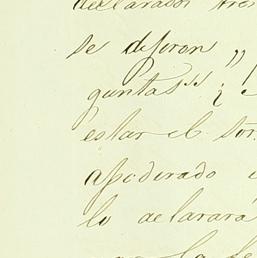 declarados tres
se dijeron "
guntas
estar el Sor.
apoderado
lo declarará
la fe